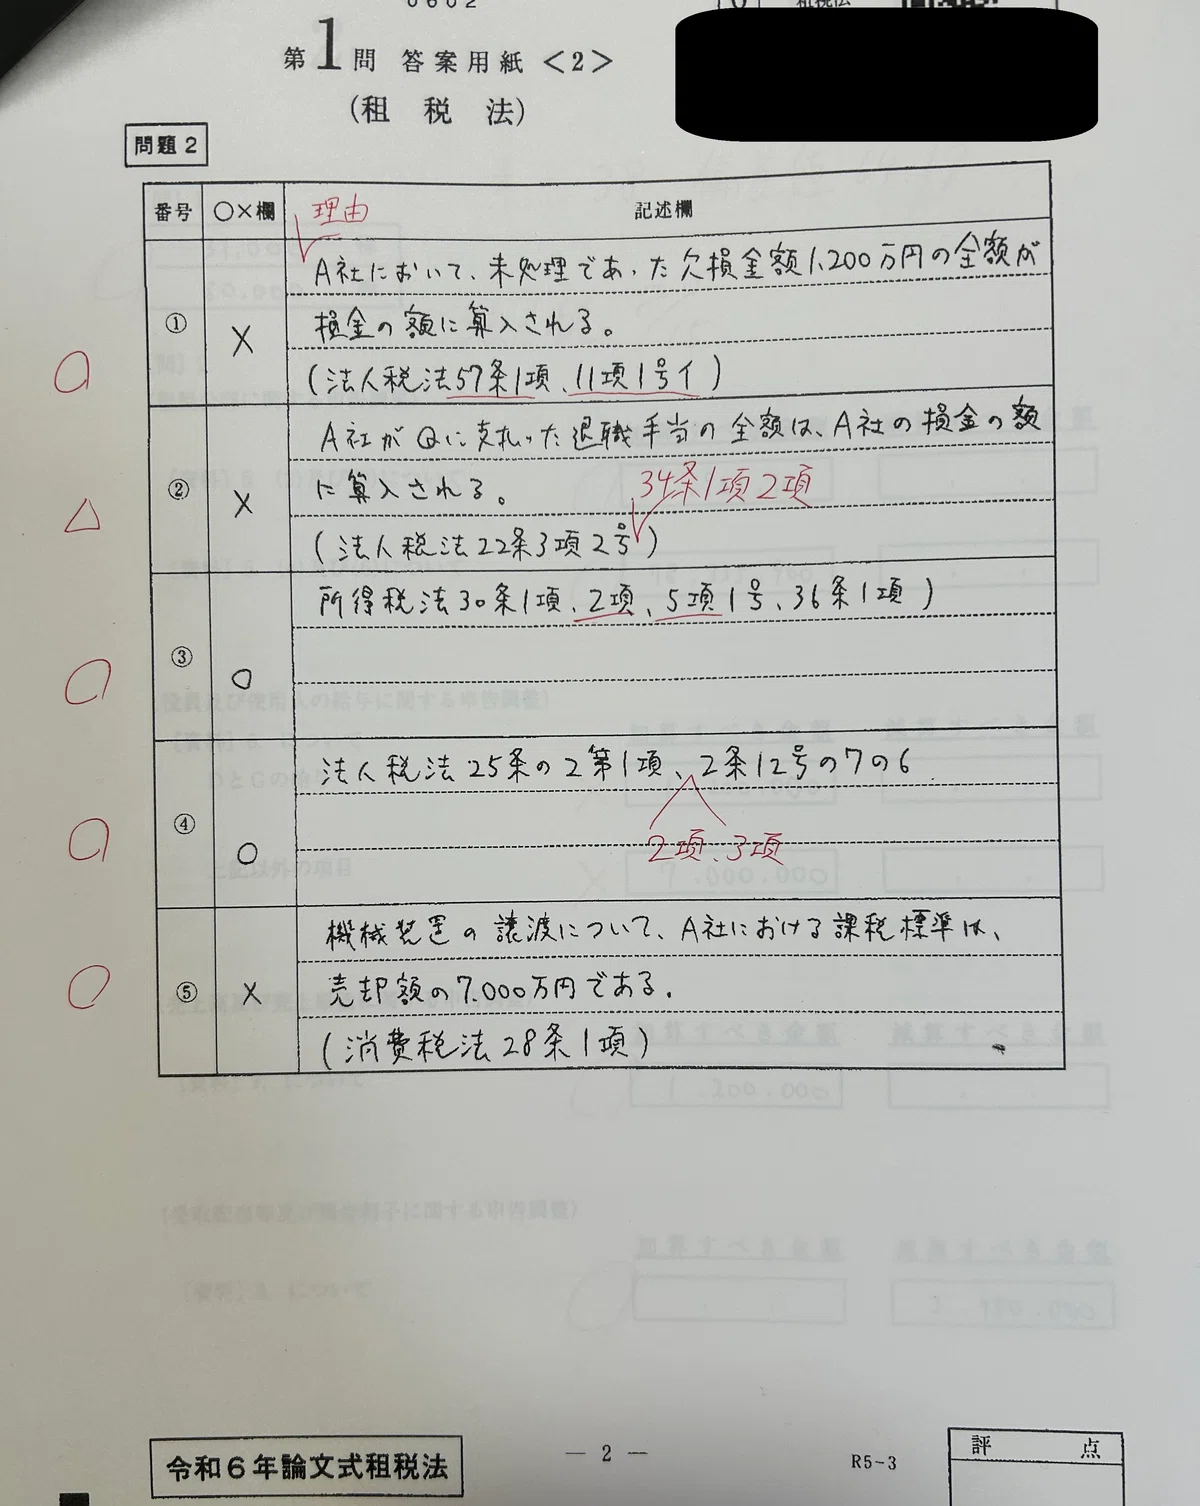 0602
租税法
第1問 答案用紙<2>
(租税法)
問題2
番号 ○×欄 理由 記述欄
① × A社において、未処理であった欠損金額1,200万円の全額が
損金の額に算入される。
(法人税法57条1項、11項1号イ)
② × A社がQに支払った退職手当の全額は、A社の損金の額
に算入される。
34条1項2項
(法人税法22条3項2号)
③ ○ 所得税法30条1項、2項、5項1号、36条1項)
④ ○ 法人税法25条の2第1項、2条12号の7の6
2項、3項
⑤ × 機械装置の譲渡について、A社における課税標準は、
売却額の7,000万円である。
(消費税法28条1項)
令和6年論文式租税法
— 2 —
R5-3
評点